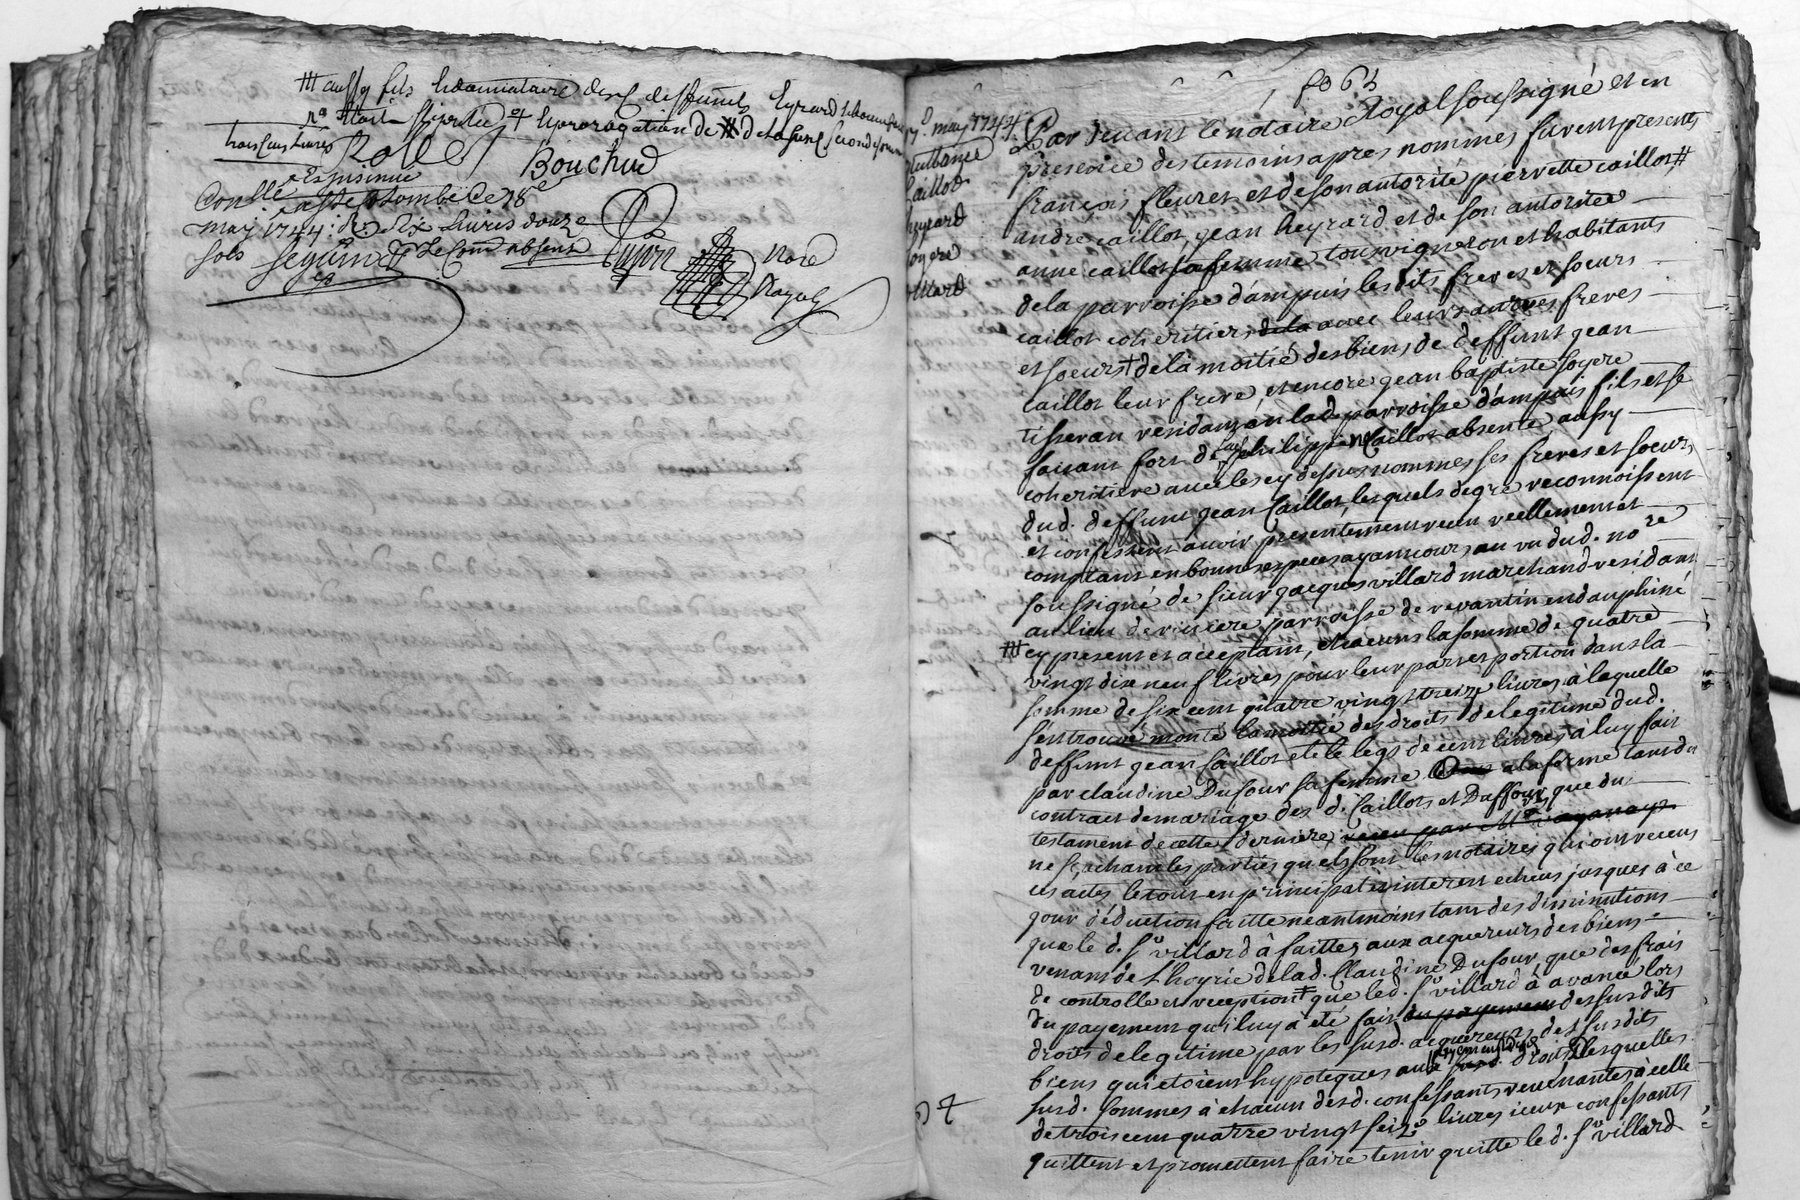 aussy fils
trois cens Livres Rolle Bouchud
Conllé
may 1744: R: dix Livres douze
sols seguin Le Com absent
Noré
Royal
fo 63
may 1744
quittance
Caillot
heyrard
soyere
villard
Pardevant le notaire Royal soussigné et en
presence des temoins apres nommés furent presents
françois fleuret et de son autorité pierrette caillot,#
andré caillot, jean heyrard et de son autorité
anne caillot sa femme tous vigneron et habitants
de la parroisse d'ampuis lesdits freres et soeurs
caillot coheritiers dela avec leurs autres freres
et soeurs + de la moitié des biens de deffunt jean
caillot leur frere, et encore jean baptiste soyere
tisseran residant en lad. parroisse d'ampuis fils et se
faisant fort de philippine Caillot absente aussy
coheritiere avec les cy dessus nommés ses freres et soeurs
dud. deffunt jean Caillot, lesquels de gré reconnoissent
et confessent avoir presentement receu reellement et
comptant en bonnes especes ayant cours au vu dud. nore
soussigné de sieur jacques villard marchand residant
au lieu de viciere parroisse de revantin en dauphiné
cy present et acceptant, chacuns la somme de quatre
vingt dix neuf livres pour leur part et portion dans la
somme de six cent quatre vingt treize livres à laquelle
s'est trouvé monté la moitié des droits de legitime dud.
deffunt jean Caillot et le legs de cent livres à luy fait
par claudine Dufour sa femme a la forme tant du
contract de mariage des d. Caillot et Duffour que du
testament de cette derniere, receu par Me
ne sçachant les parties quels sont les notaires qui ont receus
ces actes le tout en principal et interest echeus jusques à ce
jour déduction faitte neantmoins tant des diminutions
que le d. sr villard à faittes aux acquereurs des biens
venant de l'hoyrie de lad. Claudine Dufour que des frais
de controlle et reception # que led. sr villard à avancé lors
du payement qui luy a eté fait du payement des susdits
droits de legitime par les susd. acquereurs des susdits
biens qui etoient hypoteques aux payement des susd. droits lesquelles
susd. sommes à chacun desd. confessants revenantes à celle
de trois cent quatre vingt seize livres iceux confessants
quittent et promettent faire tenir quitte le d. sr villard